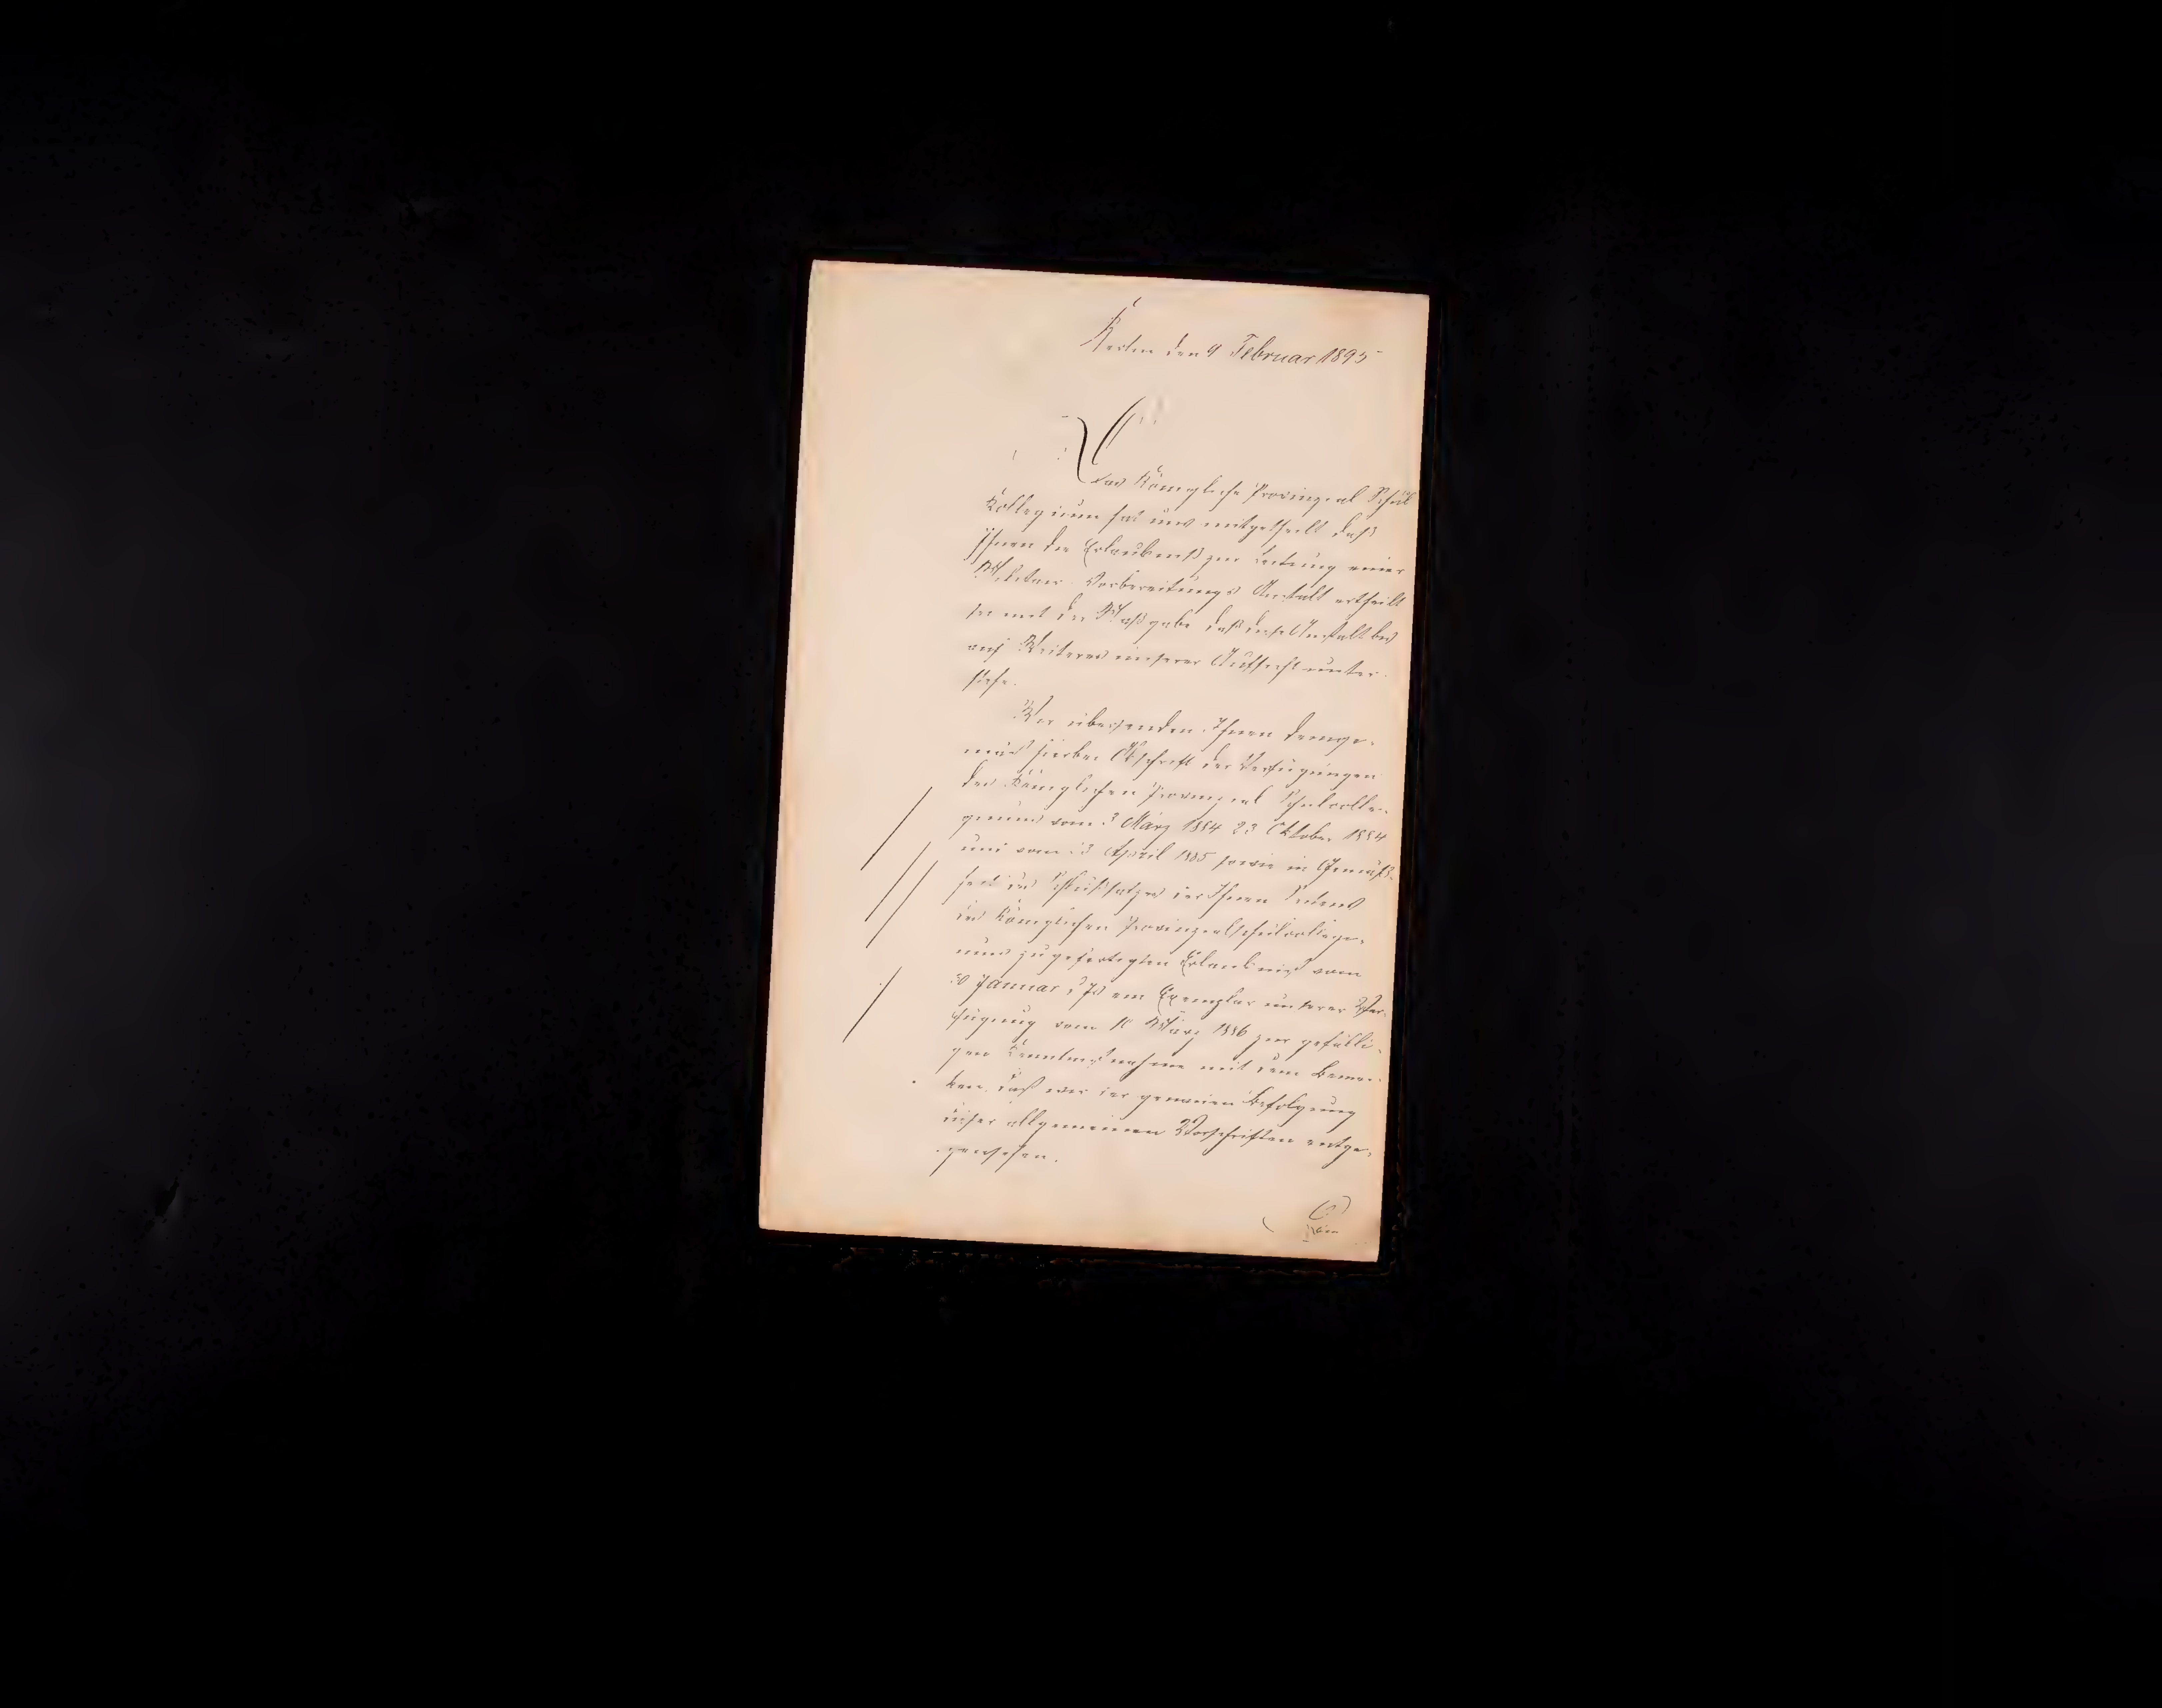 Berlin den 9 Februar 1895
Das Königliche Provinzial Schul
Kollegium hat uns mitgetheilt daß
Ihnen die Erlaubniß zur Leitung einer
Militär-Vorbereitungs Anstalt ertheilt
sei mit der Maßgabe daß diese Anstalt bis
auf Weiteres unserer Aufsicht unter-
stehe.
Wir übersenden Ihnen demge-
mäß hierbei Abschrift der Verfügungen
des Königlichen Provinzial Schulcolle-
giums vom 3 März 1884 23 Oktober 1884
und vom 13 April 1885 sowie in Gemäß-
heit des Schlußsatzes der Ihnen Seitens
des Königlichen Provinzialschulcollegi-
ums zugefertigten Erlaubniß vom
30 Januar d Js ein Exemplar unserer Ver-
fügung vom März 1886 zur gefälli-
gen Kenntnißnahme mit dem Bemer-
ken, daß wir der genauen Befolgung
dieser allgemeinen Vorschriften entge-
gensehen.